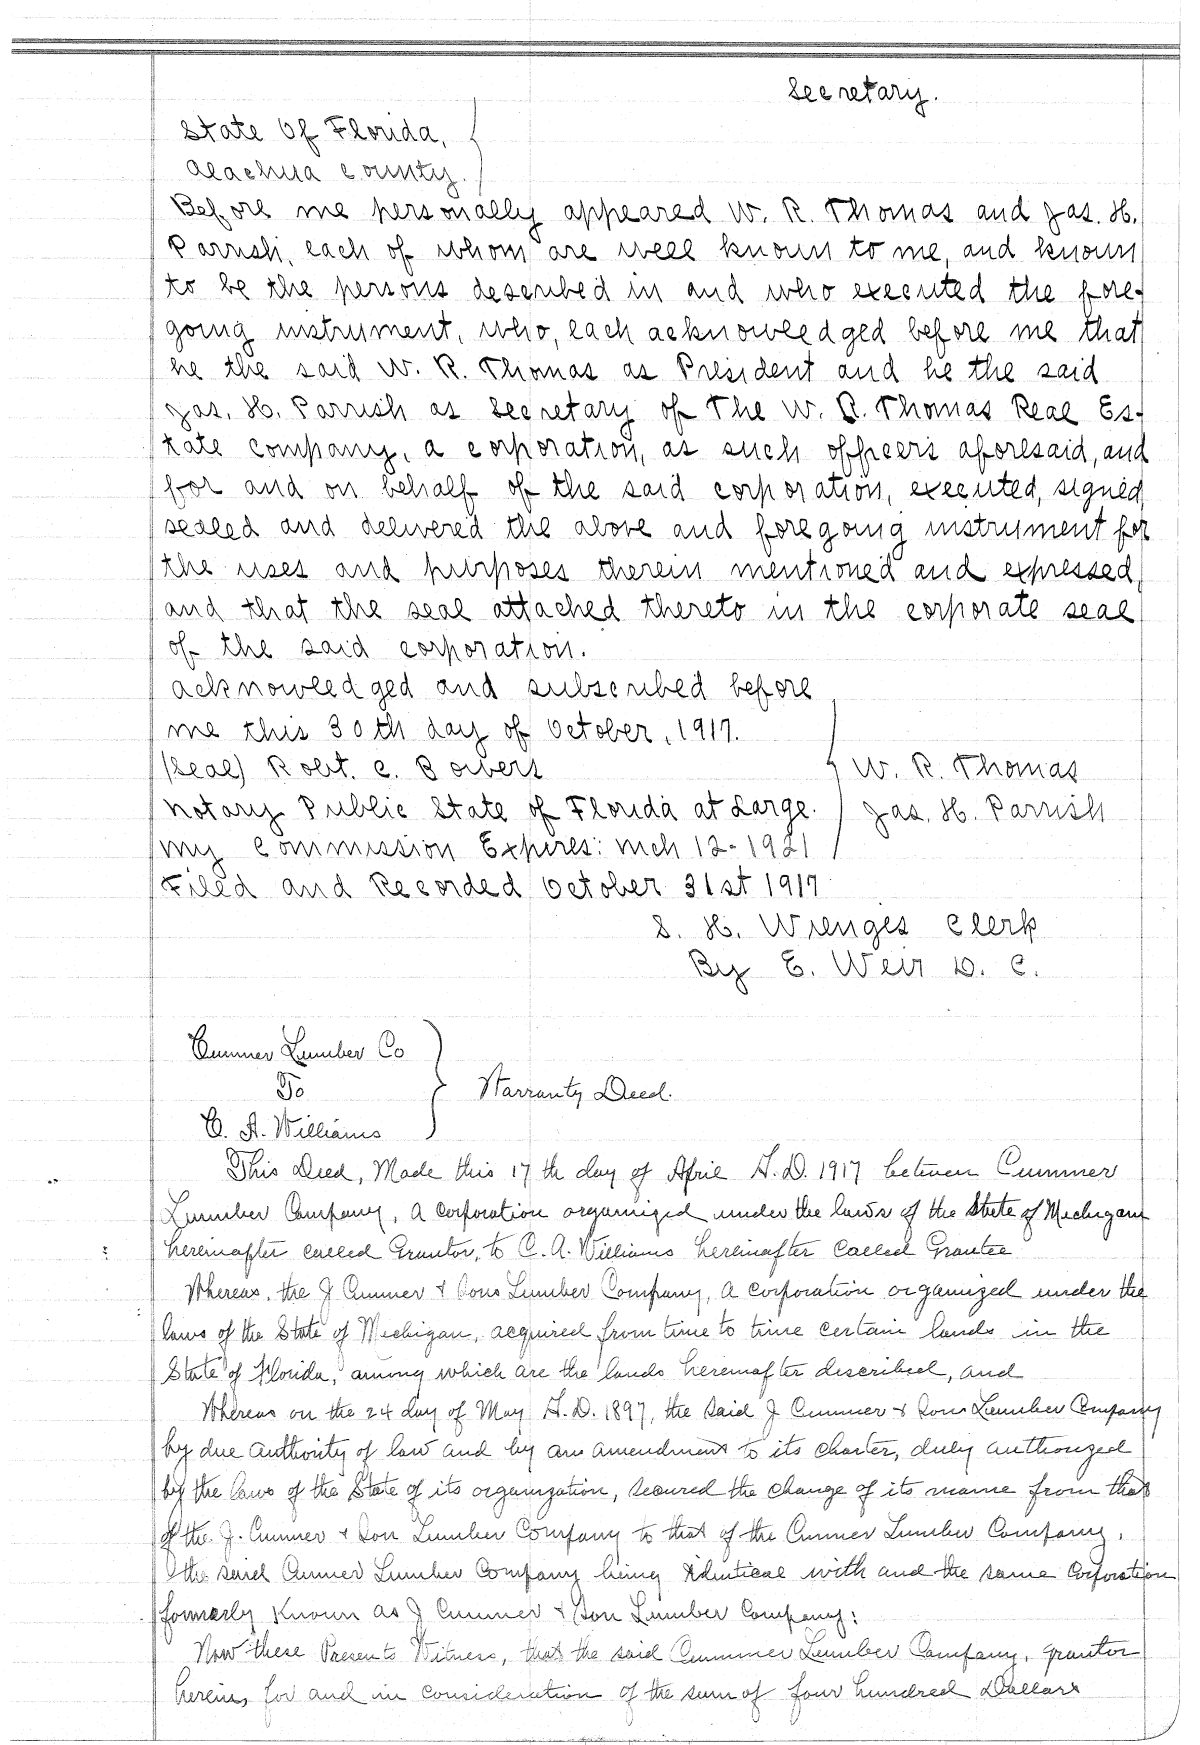 Secretary.
State Of Florida,
Alachua County.
Before me personally appeared W. R. Thomas and Jas. H.
Parrish, each of whom are well known to me, and known
to be the persons described in and who executed the fore-
going instrument, who, each acknowledged before me that
he the said W. R. Thomas as President and he the said
Jas. H. Parrish as Secretary of The W. R. Thomas Real Es-
tate Company, a corporation, as such officers aforesaid, and
for and on behalf of the said corporation, executed, signed,
sealed and delivered the above and foregoing instrument for
the uses and purposes therein mentioned and expressed,
and that the seal attached thereto in the corporate seal
of the said corporation.
Acknowledged and subscribed before
me this 30th day of October, 1917.
(Seal) Robt. C. Bowers W. R. Thomas
Notary Public State of Florida at Large. Jas. H. Parrish
My Commission Expires: Mch 12-1921
Filed and Recorded October 31st 1917
S. H. Wienges Clerk
By E. Weir D. C.
Cummer Lumber Co
To
Warranty Deed.
C. A. Williams
This Deed, Made this 17th day of April A.D. 1917 between Cummer
Lumber Company, a corporation organized under the laws of the State of Michigan
hereinafter called Grantor, to C. A. Williams hereinafter called Grantee
Whereas, the J Cummer & Sons Lumber Company, a corporation organized under the
laws of the State of Michigan, acquired from time to time certain lands in the
State of Florida, among which are the lands hereinafter described, and
Whereas on the 24 day of May A.D. 1897, the said J Cummer & Sons Lumber Company
by due authority of law and by an amendment to its charter, duly authorized
by the laws of the State of its organization, secured the change of its name from that
of the J. Cummer & Son Lumber Company to that of the Cummer Lumber Company,
the said Cummer Lumber Company being identical with and the same Corporation
formerly known as J Cummer & Son Lumber Company;
Now these Presents Witness, that the said Cummer Lumber Company, grantor
herein, for and in consideration of the sum of four hundred Dollars